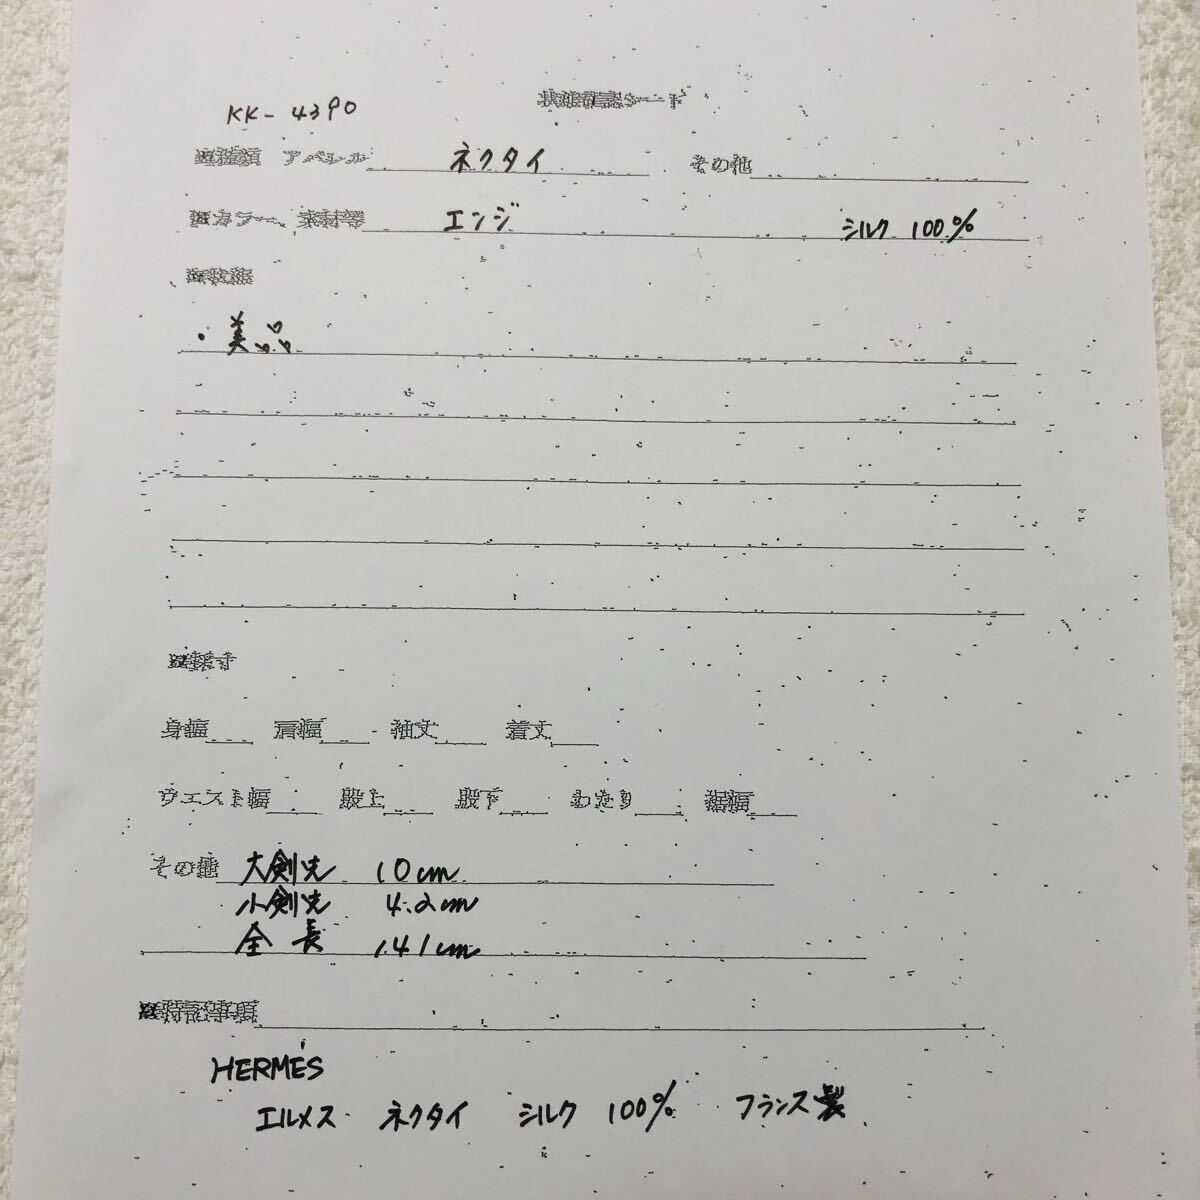 状態確認シート
KK-4390
※種類 アパレル ネクタイ その他
※カラー、素材等 エンジ シルク 100%
※状態
・美品
※採寸
身幅 肩幅 袖丈 着丈
ウエスト幅 股上 股下 わたり 裾幅
その他 大剣先 10cm
小剣先 4.2cm
全長 141cm
※特記事項
HERMÉS
エルメス ネクタイ シルク 100% フランス製